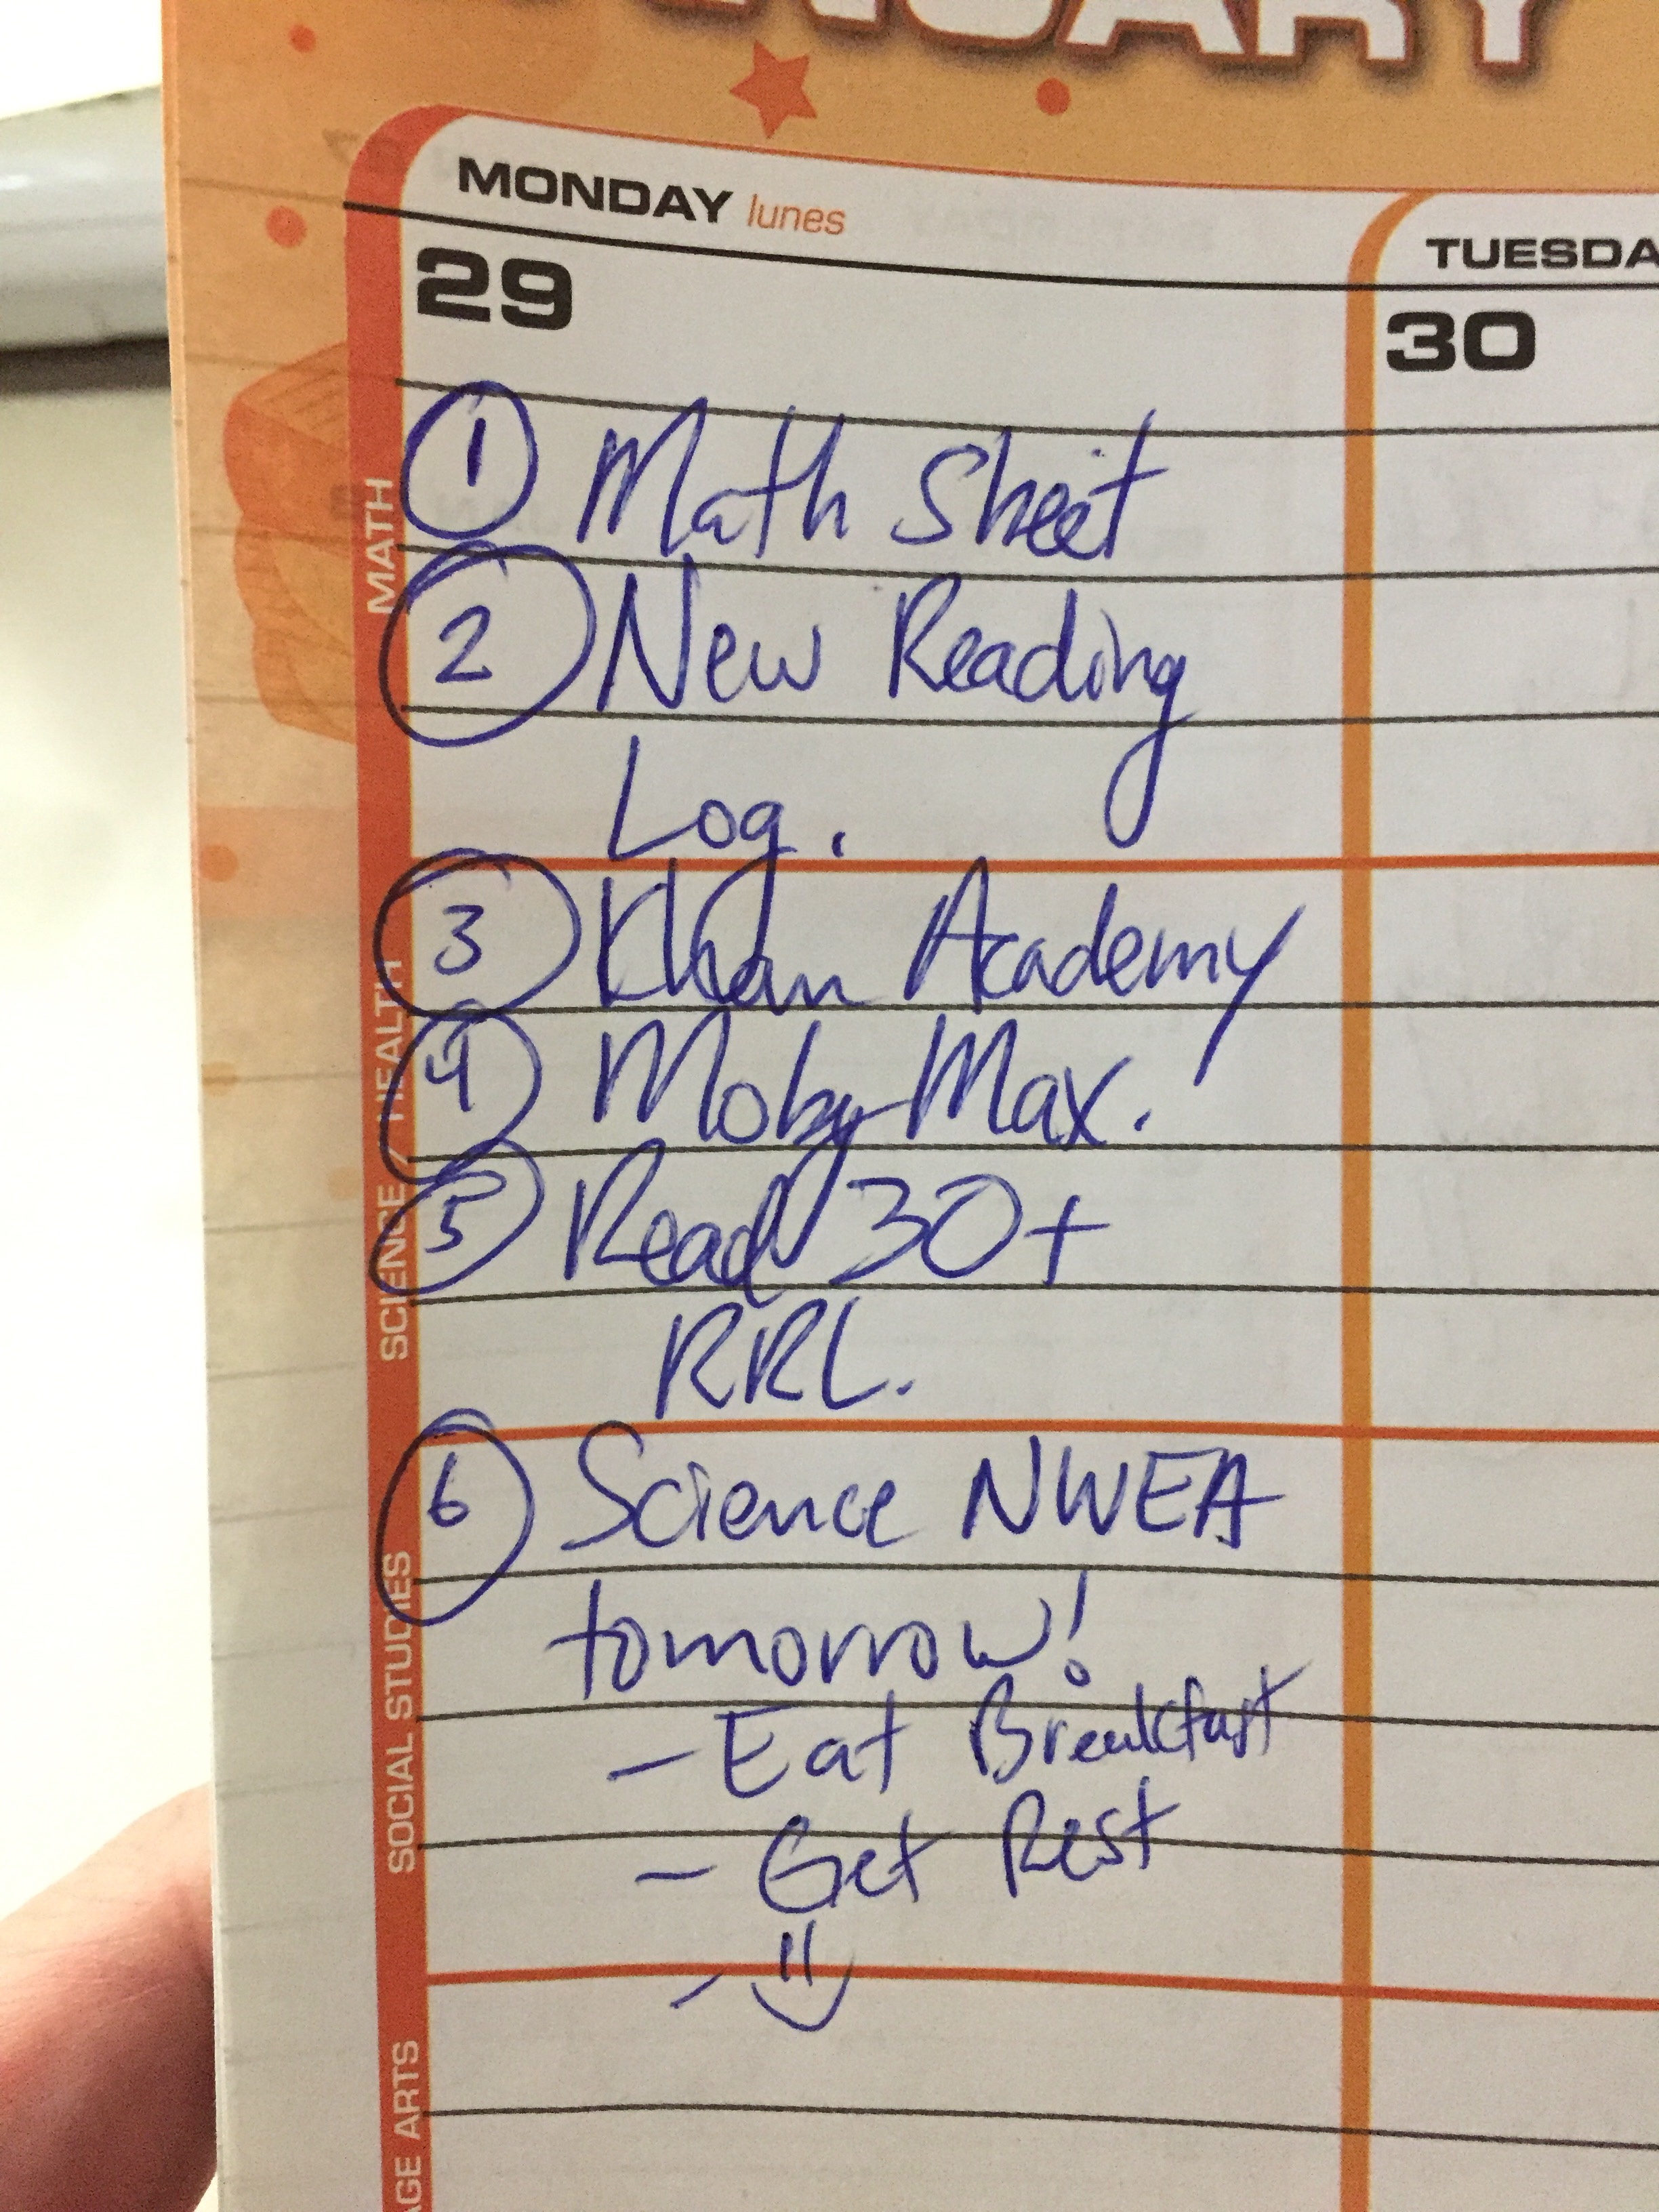 MONDAY lunes
TUESDA
29
30
MATH
① Math Sheet
② New Reading
Log.
SCIENCE / HEALTH
③ Khan Academy
④ Moby Max.
⑤ Read 30+
RRL.
SOCIAL STUDIES
⑥ Science NWEA
tomorrow!
- Eat Breakfast
- Get Rest
-
AGE ARTS